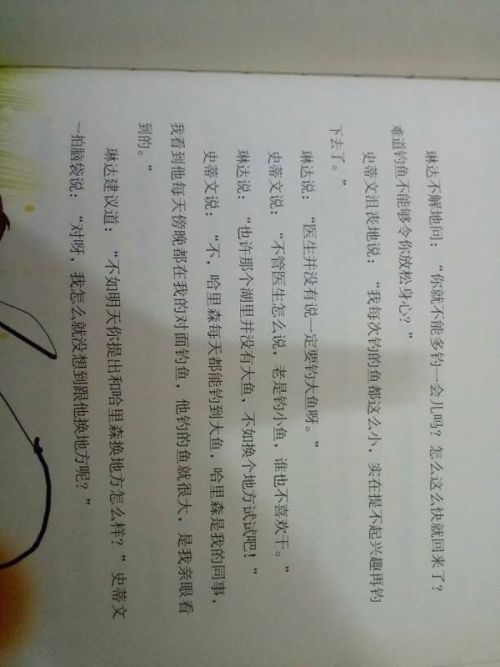 琳达不解地问：“你就不能多钓一会儿吗？怎么这么快就回来了？
难道钓鱼不能够令你放松身心？”
史蒂文沮丧地说：“我每次钓的鱼都这么小，实在提不起兴趣再钓
下去了。”
琳达说：“医生并没有说一定要钓大鱼呀。”
史蒂文说：“不管医生怎么说，老是钓小鱼，谁也不喜欢干。”
琳达说：“也许那个湖里并没有大鱼，不如换个地方试试吧！”
史蒂文说：“不，哈里森每天都能钓到大鱼，哈里森是我的同事，
我看到他每天傍晚都在我的对面钓鱼，他钓的鱼就很大，是我亲眼看
到的。”
琳达建议道：“不如明天你提出和哈里森换地方怎么样？”史蒂文
一拍脑袋说：“对呀，我怎么就没想到跟他换地方呢？”